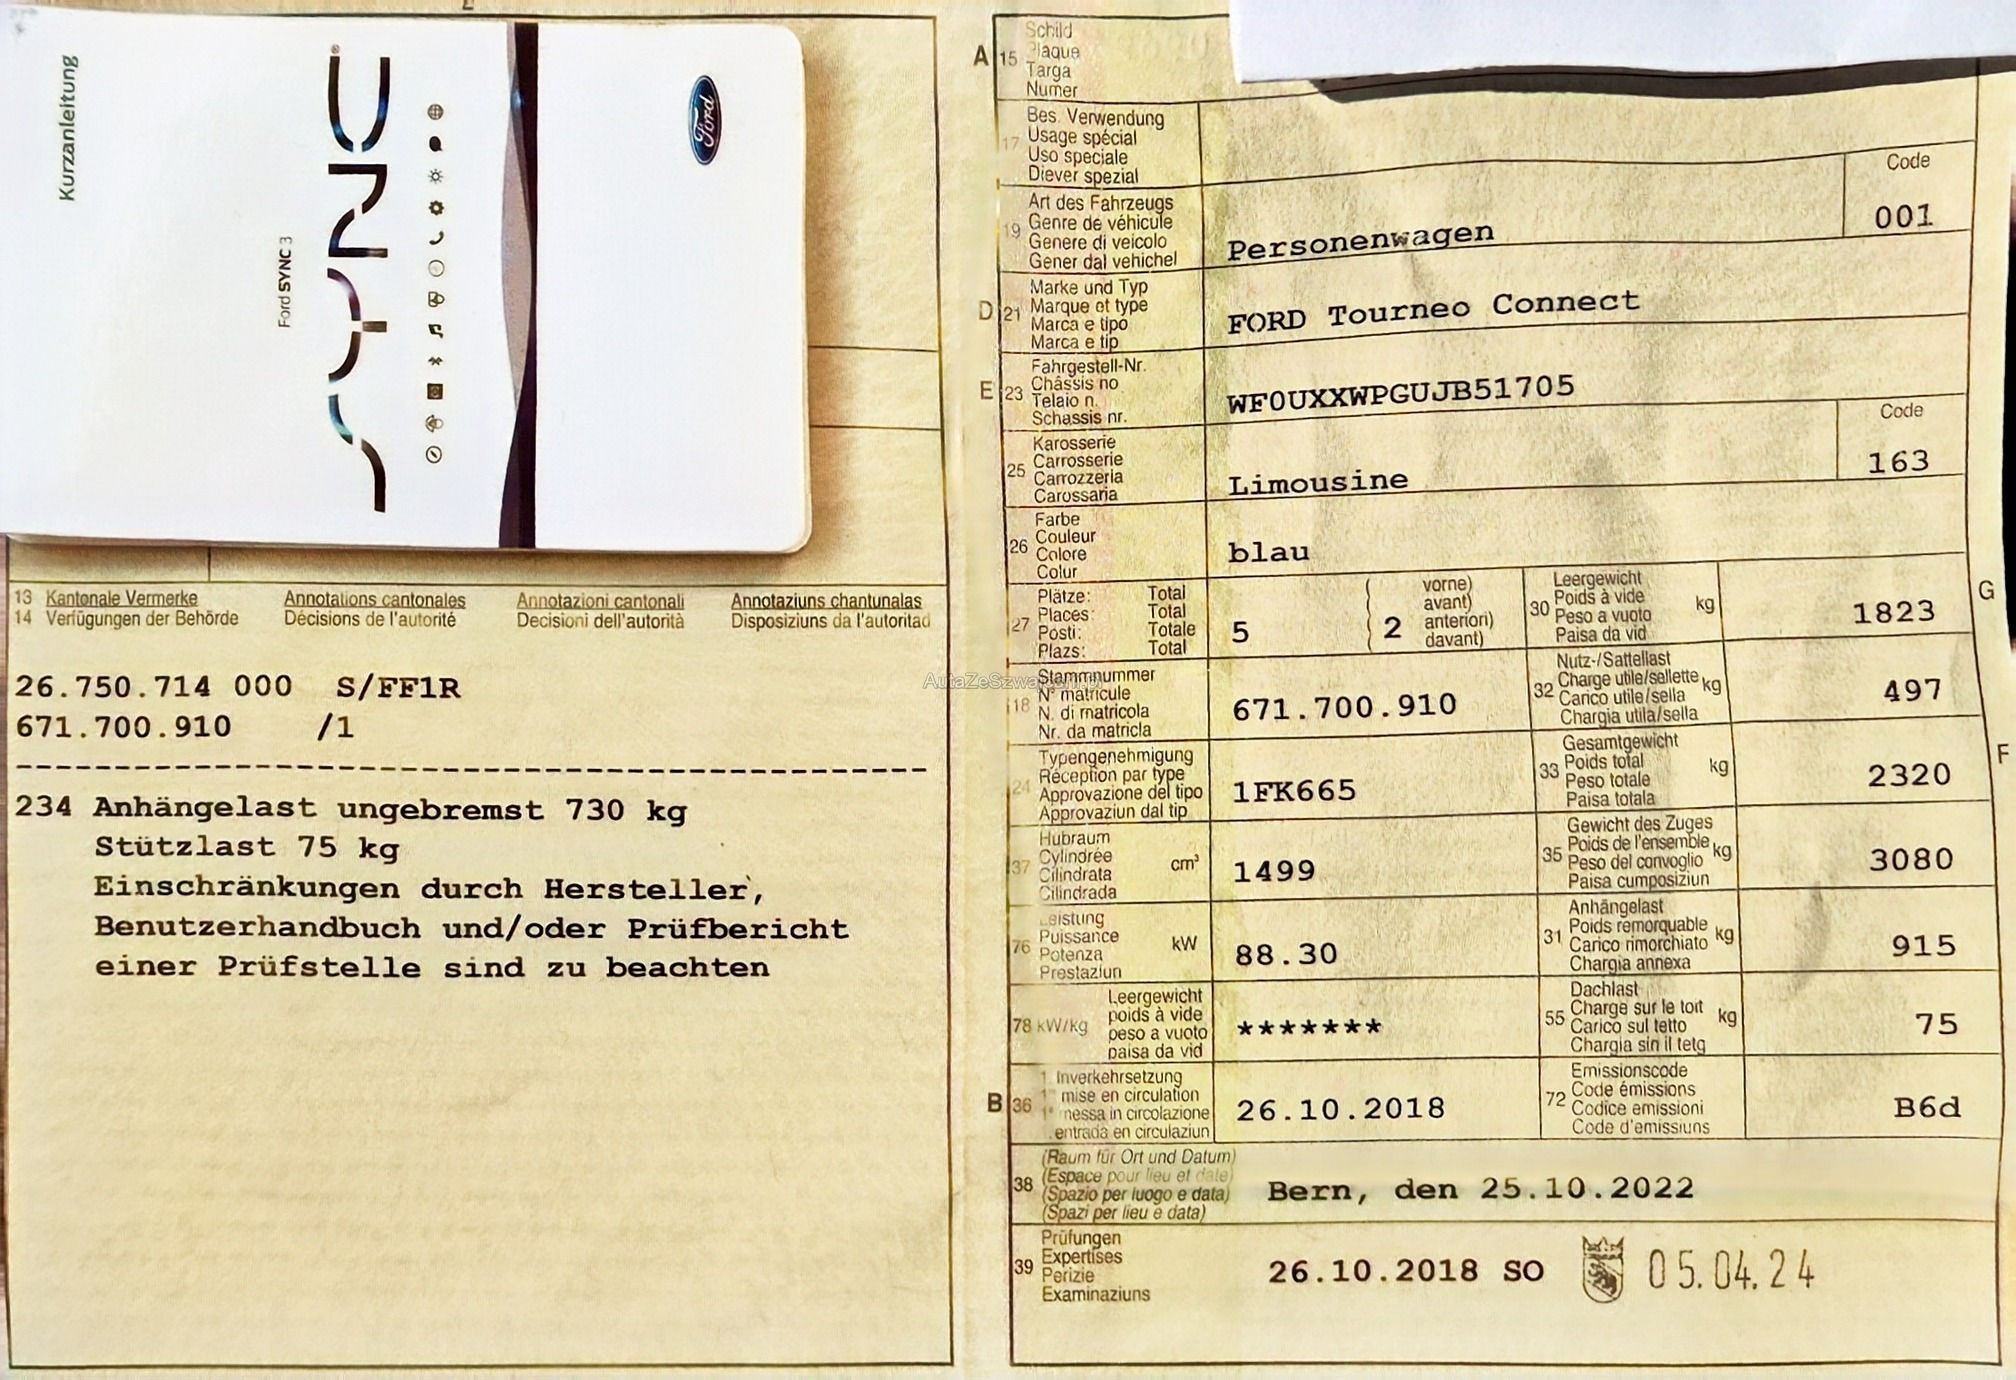 Kurzanleitung
Ford SYNC 3
SYNC®
Ford
13 Kantonale Vermerke Annotations cantonales Annotazioni cantonali Annotaziuns chantunalas
14 Verfügungen der Behörde Décisions de l'autorité Decisioni dell'autorità Disposiziuns da l'autoritad
26.750.714 000 S/FF1R
671.700.910 /1
234 Anhängelast ungebremst 730 kg
Stützlast 75 kg
Einschränkungen durch Hersteller,
Benutzerhandbuch und/oder Prüfbericht
einer Prüfstelle sind zu beachten
A 15 Schild
Plaque
Targa
Numer
17 Bes. Verwendung
Usage spécial
Uso speciale
Diever spezial
19 Art des Fahrzeugs
Genre de véhicule
Genere di veicolo
Gener dal vehichel
Personenwagen
Code
001
D 21 Marke und Typ
Marque et type
Marca e tipo
Marca e tip
FORD Tourneo Connect
E 23 Fahrgestell-Nr.
Châssis no
Telaio n.
Schassis nr.
WF0UXXWPGUJB51705
25 Karosserie
Carrosserie
Carrozzeria
Carossaria
Limousine
Code
163
26 Farbe
Couleur
Colore
Colur
blau
27 Plätze: Total
Places: Total
Posti: Totale
Plazs: Total
5
2
vorne)
avant)
anteriori)
davant)
30 Leergewicht
Poids à vide
Peso a vuoto
Paisa da vid
kg
1823
G
18 Stammnummer
N° matricule
N. di matricola
Nr. da matricla
671.700.910
32 Nutz-/Sattellast
Charge utile/sellette
Carico utile/sella
Chargia utila/sella
kg
497
24 Typengenehmigung
Réception par type
Approvazione del tipo
Approvaziun dal tip
1FK665
33 Gesamtgewicht
Poids total
Peso totale
Paisa totala
kg
2320
F
37 Hubraum
Cylindrée
Cilindrata
Cilindrada
cm³
1499
35 Gewicht des Zuges
Poids de l'ensemble
Peso del convoglio
Paisa cumposiziun
kg
3080
76 Leistung
Puissance
Potenza
Prestaziun
kW
88.30
31 Anhängelast
Poids remorquable
Carico rimorchiato
Chargia annexa
kg
915
78 kW/kg
Leergewicht
poids à vide
peso a vuoto
paisa da vid
*******
55 Dachlast
Charge sur le toit
Carico sul tetto
Chargia sin il tetg
kg
75
B 36 1. Inverkehrsetzung
mise en circulation
messa in circolazione
entrada en circulaziun
26.10.2018
72 Emissionscode
Code émissions
Codice emissioni
Code d'emissiuns
B6d
38 (Raum für Ort und Datum)
(Espace pour lieu et date)
(Spazio per luogo e data)
(Spazi per lieu e data)
Bern, den 25.10.2022
39 Prüfungen
Expertises
Perizie
Examinaziuns
26.10.2018 SO
05.04.24